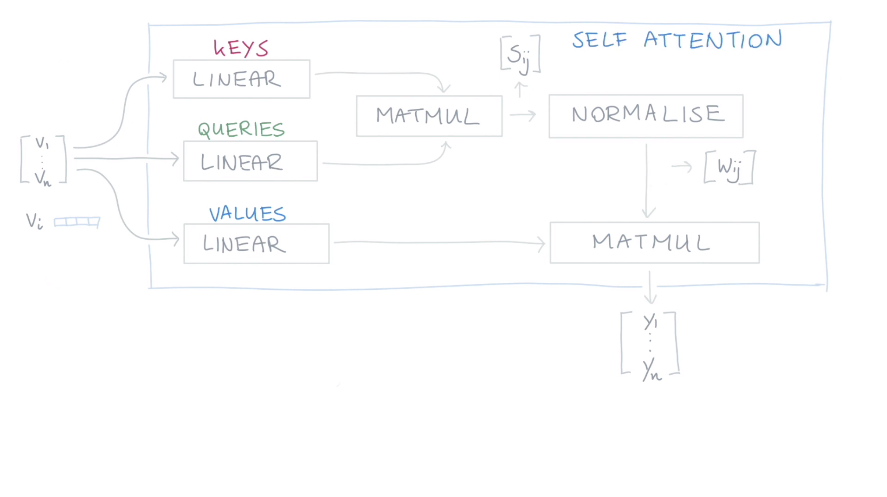 SELF ATTENTION
KEYS
LINEAR
QUERIES
LINEAR
VALUES
LINEAR
MATMUL
[Sij]
NORMALISE
[Wij]
MATMUL
V1
⋮
Vn
Vi
y1
⋮
yn